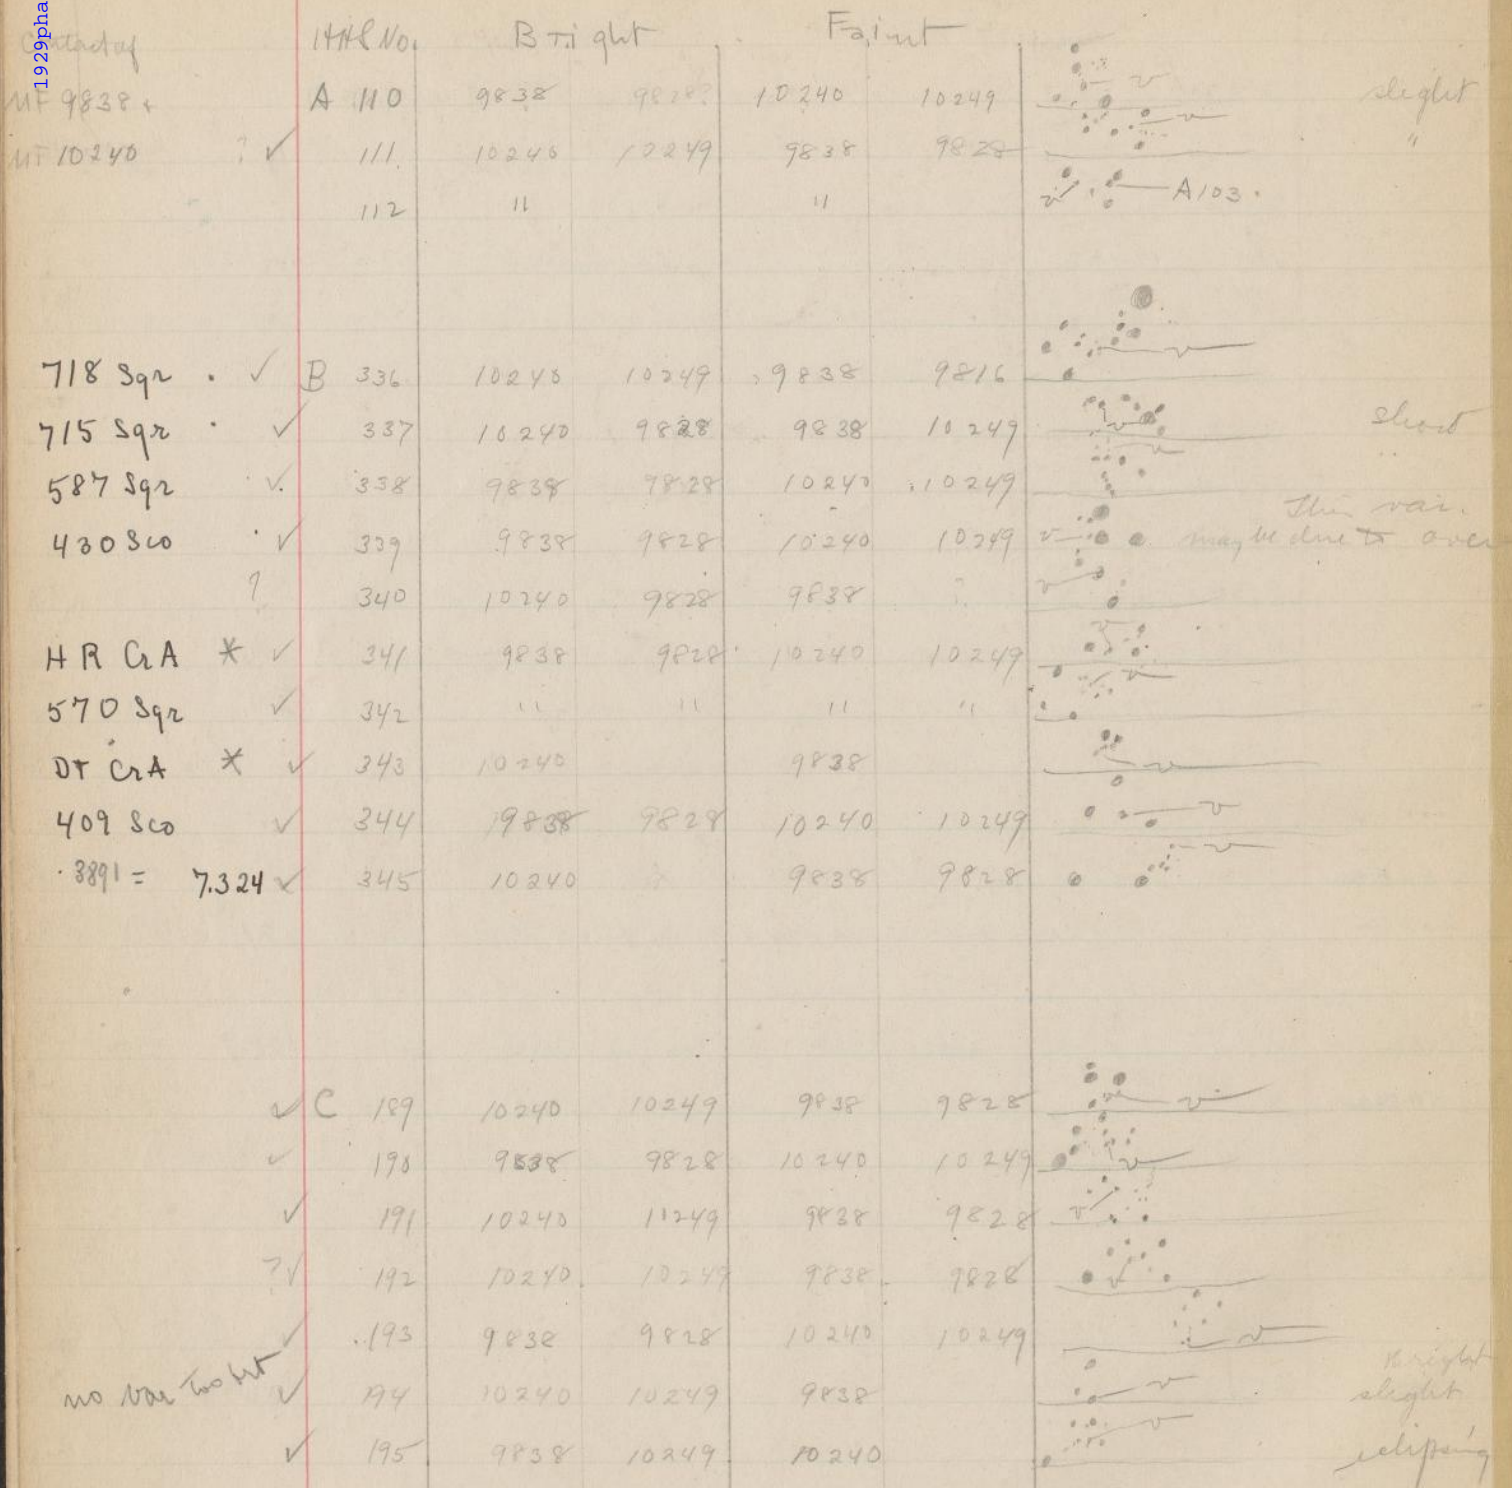 1929pha
Contact of HHS No. Bright Faint
MF 9838 & A 110 9838 9828? 10240 10249 v slight
MF 10240 ? ✓ 111 10240 10249 9838 9828 v "
112 " " v A103.
718 Sgr . ✓ B 336 10240 10249 9838 9816 v
715 Sgr . ✓ 337 10240 9828 9838 10249 v Short
587 Sgr ✓ 338 9838 9828 10240 10249 v "
This var.
430 Sco ✓ 339 9838 9828 10240 10249 v may be due to over
? 340 10240 9828 9838 ? v
HR CrA * ✓ 341 9838 9828 10240 10249 v
570 Sgr ✓ 342 " " " " v
DT CrA * ✓ 343 10240 9838 v
409 Sco ✓ 344 9838 9828 10240 10249 v
.3891 = 7.324 ✓ 345 10240 9838 9828 v
✓ C 189 10240 10249 9838 9828 v
✓ 190 9838 9828 10240 10249 v
✓ 191 10240 10249 9838 9828 v
?✓ 192 10240 10249 9838 9828 v
✓ 193 9838 9828 10240 10249 v
no var ✓ 194 10240 10249 9838 v slight
✓ 195 9838 10249 10240 v eclipsing